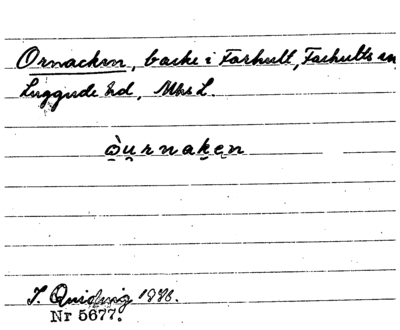 Ornacken, backe i Farhult, Farhults sn
Luggude hd, Mhs L.
òu̯rnaken
T. Quiding 1936.
Nr 5677.